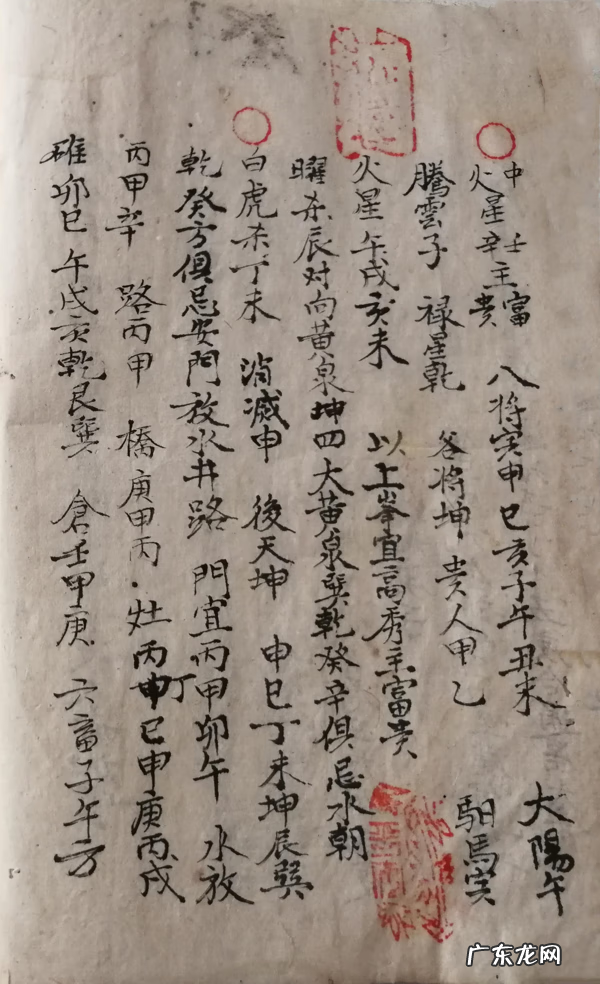 中火星辛壬主富貴 八将寅申巳亥子午丑未 大陽午
騰雲子 禄星乾 各将坤 貴人甲乙 馹馬寅
火星午戌亥未 以上峯宜高秀主富贵
曜杀辰对向黄泉坤四大黄泉巽乾癸辛俱忌水朝
白虎杀丁未 消滅申 後天坤 申巳丁未坤辰巽
乾癸方俱忌安門放水井路 門宜丙甲卯午 水放
丙甲辛 路丙甲 橋庚甲丙 灶丙丁巳申庚丙戌
碓卯巳午戌亥乾艮巽 倉壬甲庚 六畜子午方
广东龙网